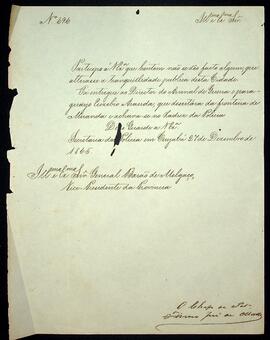 Nº 696
Illmo e Exmo Snr.
Participo a V Exª que hontem não se deu facto algum que
alterasse a tranquillidade publica desta Cidade
Foi entregue ao Director do Arsenal de Guerra o para-
guayo Acevedo, que desertára da fronteira de
Miranda e achava-se no Xadrez da Policia
Deos Guarde a V Exª
Secretaria da Policia em Cuyabá 27 de Dezembro de
1865
Illmo e Exmo Snr General Barão de Melgaço,
Vice-Presidente da Provincia
O Chefe de